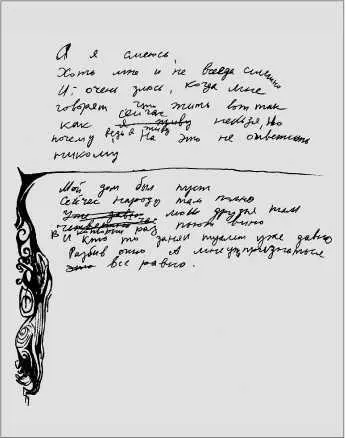 А я смеюсь,
Хоть мне и не всегда смешно
И очень злюсь, когда мне
говорят что жить вот так
как сейчас я живу нельзя, Но
почему ведь я живу, На это не ответить
никому
Мой дом был пуст
Сейчас народу там полно
Уже давно мои друзья там
В который раз пьют вино
И кто то занял туалет уже давно
Разбив окно А мне уж признаться
это все равно.